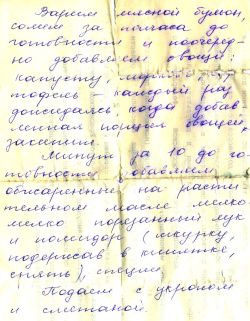 Варим мясной бульон,
солим за полчаса до
готовности и поочеред-
но добавляем овощи:
капусту, морковь, кар-
тофель - каждый раз
дожидаясь когда добав-
ленная порция овощей
закипит.
Минут за 10 до го-
товности добавляем
обжаренные на расти-
тельном масле мелко-
мелко порезанный лук
и помидор (шкурку,
подержав в кипятке,
снять), специи.
Подаем с укропом
и сметаной.